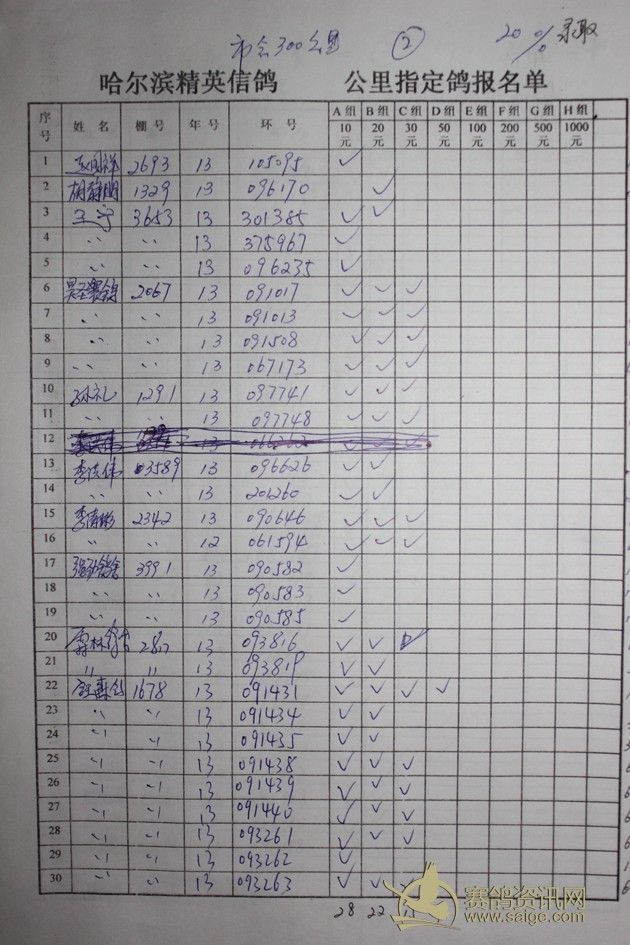 市会300公里 ② 20% 录取
哈尔滨精英信鸽 公里指定鸽报名单
序号 姓名 棚号 年号 环号 A组 B组 C组 D组 E组 F组 G组 H组
10元 20元 30元 50元 100元 200元 500元 1000元
1 2693 13 105095 ✓
2 1329 13 096170 ✓
3 王宁 3653 13 301385 ✓ ✓
4 〃 〃 13 375967 ✓
5 〃 〃 13 096235 ✓
6 2067 13 091017 ✓ ✓ ✓
7 〃 〃 13 091013 ✓ ✓ ✓
8 〃 〃 13 091508 ✓ ✓ ✓
9 〃 〃 13 067173 ✓ ✓ ✓
10 孙礼 1291 13 097741 ✓ ✓ ✓
11 〃 〃 13 097748 ✓ ✓ ✓
12
13 李洪伟 03589 13 096626 ✓ ✓
14 〃 〃 13 201260 ✓ ✓
15 2342 13 090646 ✓ ✓ ✓
16 〃 〃 12 061594 ✓ ✓ ✓
17 3991 13 090582 ✓
18 〃 〃 13 090583 ✓
19 〃 〃 13 090585 ✓
20 13 093816 ✓ ✓
21 〃 〃 13 093819 ✓ ✓
22 1678 13 091431 ✓ ✓ ✓ ✓
23 〃 〃 13 091434 ✓ ✓
24 〃 〃 13 091435 ✓ ✓
25 〃 〃 13 091438 ✓ ✓ ✓
26 〃 〃 13 091439 ✓ ✓ ✓
27 〃 〃 13 091440 ✓ ✓ ✓
28 〃 〃 13 093261 ✓ ✓ ✓
29 〃 〃 13 093262 ✓
30 〃 〃 13 093263 ✓ ✓
28 22
赛鸽资讯网
www.saige.com